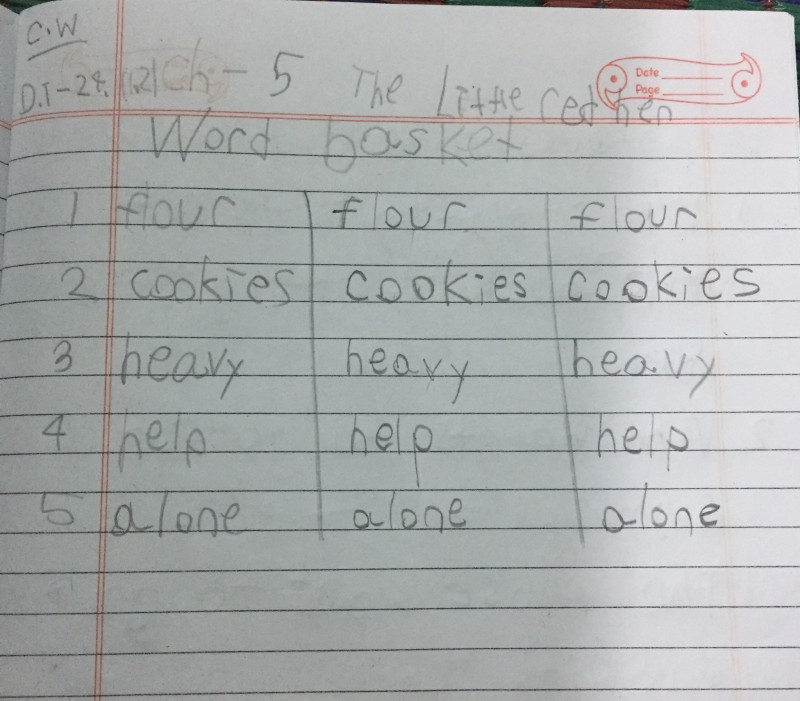 C.W
D.T-24. Ch-5 The Little red hen
Date
Page
Word basket
1 flour flour flour
2 cookies cookies cookies
3 heavy heavy heavy
4 help help help
5 alone alone alone